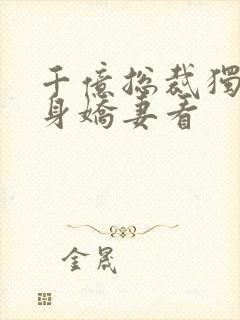 千億總裁獨
身嬌妻看
金晟